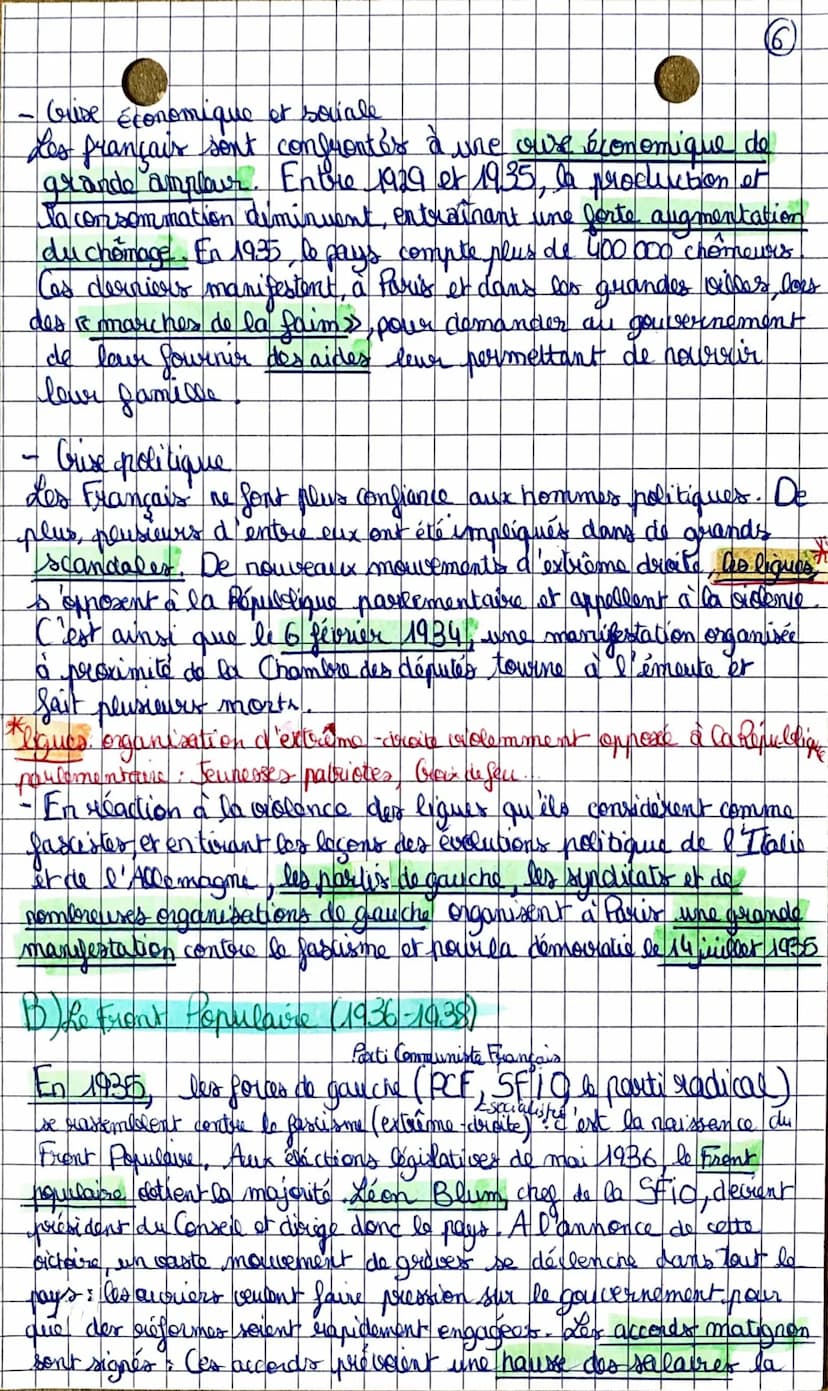 6
- Crise économique et sociale
Les français sont confrontés à une crise économique de
grande ampleur. Entre 1929 et 1935, la production et
la consommation diminuent, entraînant une forte augmentation
du chômage. En 1935, le pays compte plus de 400 000 chômeurs.
Ces derniers manifestent, à Paris et dans les grandes villes, lors
des « marches de la faim », pour demander au gouvernement
de leur fournir des aides leur permettant de nourrir
leur famille.
- Crise politique
Les Français ne font plus confiance aux hommes politiques. De
plus, plusieurs d'entre eux ont été impliqués dans de grands
scandales. De nouveaux mouvements d'extrême droite, les ligues*
s'opposent à la République parlementaire et appellent à la violence.
C'est ainsi que le 6 février 1934, une manifestation organisée
à proximité de la Chambre des députés tourne à l'émeute et
fait plusieurs morts.
*ligues: organisation d'extrême-droite violemment opposé à la République
parlementaire : Jeunesses patriotes, Croix de feu...
- En réaction à la violence des ligues qu'ils considèrent comme
fascistes, et en tirant les leçons des évolutions politique de l'Italie
et de l'Allemagne, les partis de gauche, les syndicats et de
nombreuses organisations de gauche organisent à Paris une grande
manifestation contre le fascisme et pour la démocratie le 14 juillet 1935
B) Le Front Populaire (1936-1938)
Parti Communiste Français
En 1935, les forces de gauche (PCF, SFIO le parti radical)
socialiste
se rassemblent contre le fascisme (extrême-droite) : c'est la naissance du
Front Populaire. Aux éléctions législatives de mai 1936, le Front
populaire obtient la majorité. Léon Blum, chef de la SFIO, devient
président du Conseil et dirige donc le pays. A l'annonce de cette
victoire, un vaste mouvement de grèves se déclenche dans tout le
pays : les ouvriers veulent faire pression sur le gouvernement pour
que des réformes soient rapidement engagées. Les accords matignon
sont signés : Ces accords prévoient une hausse des salaires la